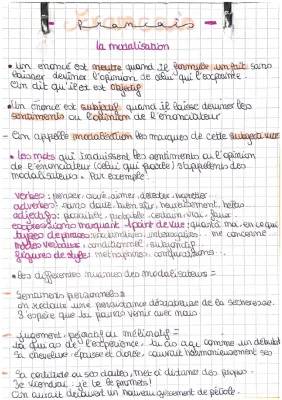 - Français -
la modalisation
• Un énoncé est neutre quand il formule un fait sans
laisser deviner l'opinion de celui qui s'exprime.
On dit qu'il est objectif
• Un énoncé est subjectif quand il laisse deviner les
sentiments ou l'opinion de l'énonciateur
- On appelle modalisation les marques de cette subjectivité
• Les mots qui traduisent les sentiments ou l'opinion
de l'énonciateur (celui qui parle) s'appellent des
modalisateurs. Par exemple:
verbes: penser, croire, aimer, détester, regretter
adverbes: sans doute, bien sûr, heureusement, hélas
adjectifs: probable, certain, vrai, faux
expressions marquant 1 point de vue: quant à moi, en ce qui me concerne
types de phrases:
modes verbaux: conditionnel, subjonctif
figures de style: métaphores, comparaisons...
• Les différentes nuances des modalisateurs =
Sentiments personnels =
on réclame une persévérance désagréable de la sécheresse.
J'espère que tu pourras venir avec nous.
- jugement, péjoratif ou mélioratif =
toi qui as de l'expérience, tu as agi comme un débutant
Sa chevelure épaisse et dorée, couvrait harmonieusement ses
Sa certitude ou ses doutes, met à distance des propos
Je viendrai, je te le promets!
On aurait découvert un nouveau gisement de pétrole.